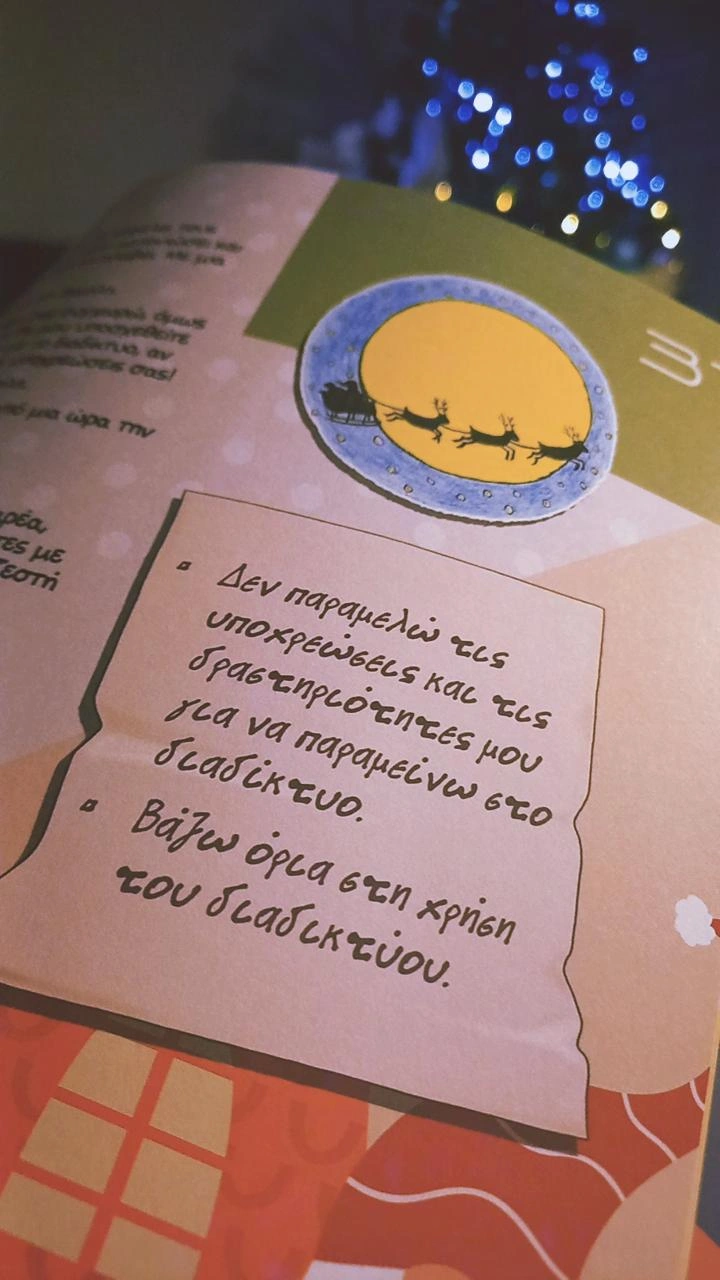 όμως
υποσχεθείτε
διαδίκτυο, αν
υποχρεώσεις σας!
μια ώρα την
με
31
▫ Δεν παραμελώ τις
υποχρεώσεις και τις
δραστηριότητες μου
για να παραμείνω στο
διαδίκτυο.
▫ Βάζω όρια στη χρήση
του διαδικτύου.